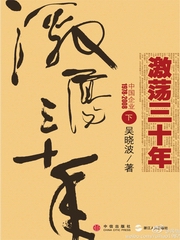 激荡三十年
激荡三十年
中国企业
1978~2008
下
吴晓波/著
中信出版社